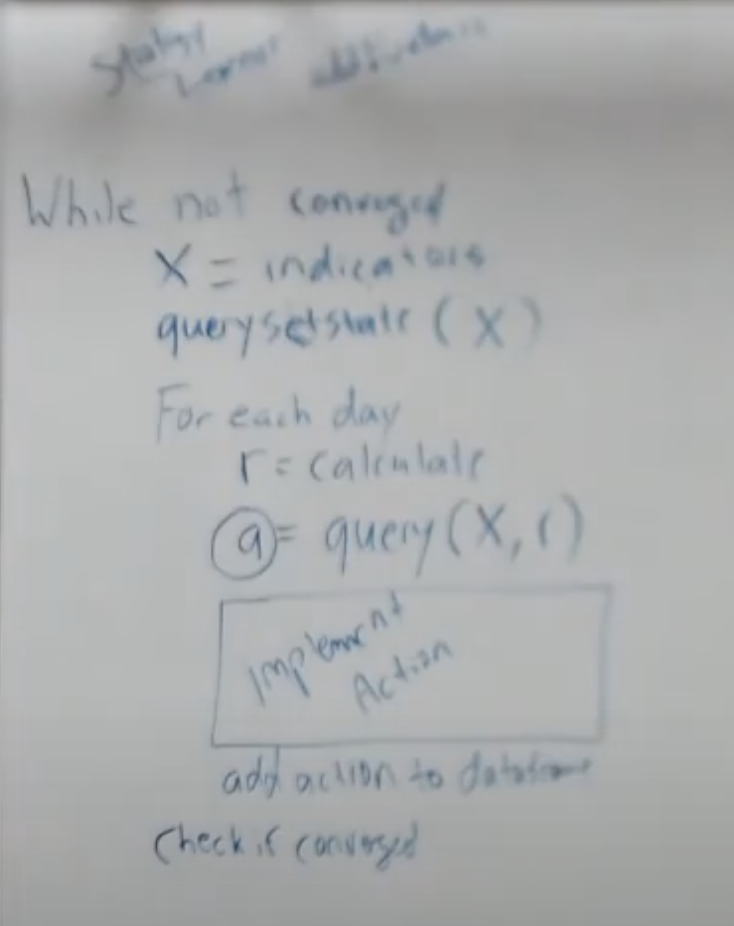 Learner
While not converged
X = indicators
querysetstate (X)
For each day
r = calculate
a = query (X, r)
Implement
Action
add action to dataframe
Check if converged